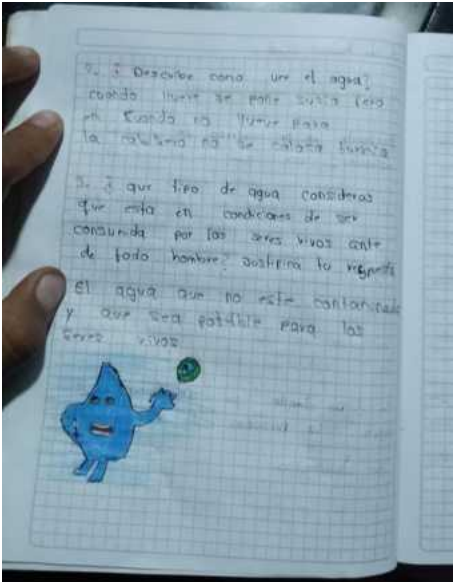 ¿ Describe como ure el agua?
cuando llueve se pone sucia pero
en cuando no llueve para
la no se coloca
3. ¿ que tipo de agua consideras
que esta en condiciones de ser
consumida por los seres vivos ante
de todo hombre? Justifica tu respuesta
El agua que no este contaminada
y que sea potable para los
seres vivos